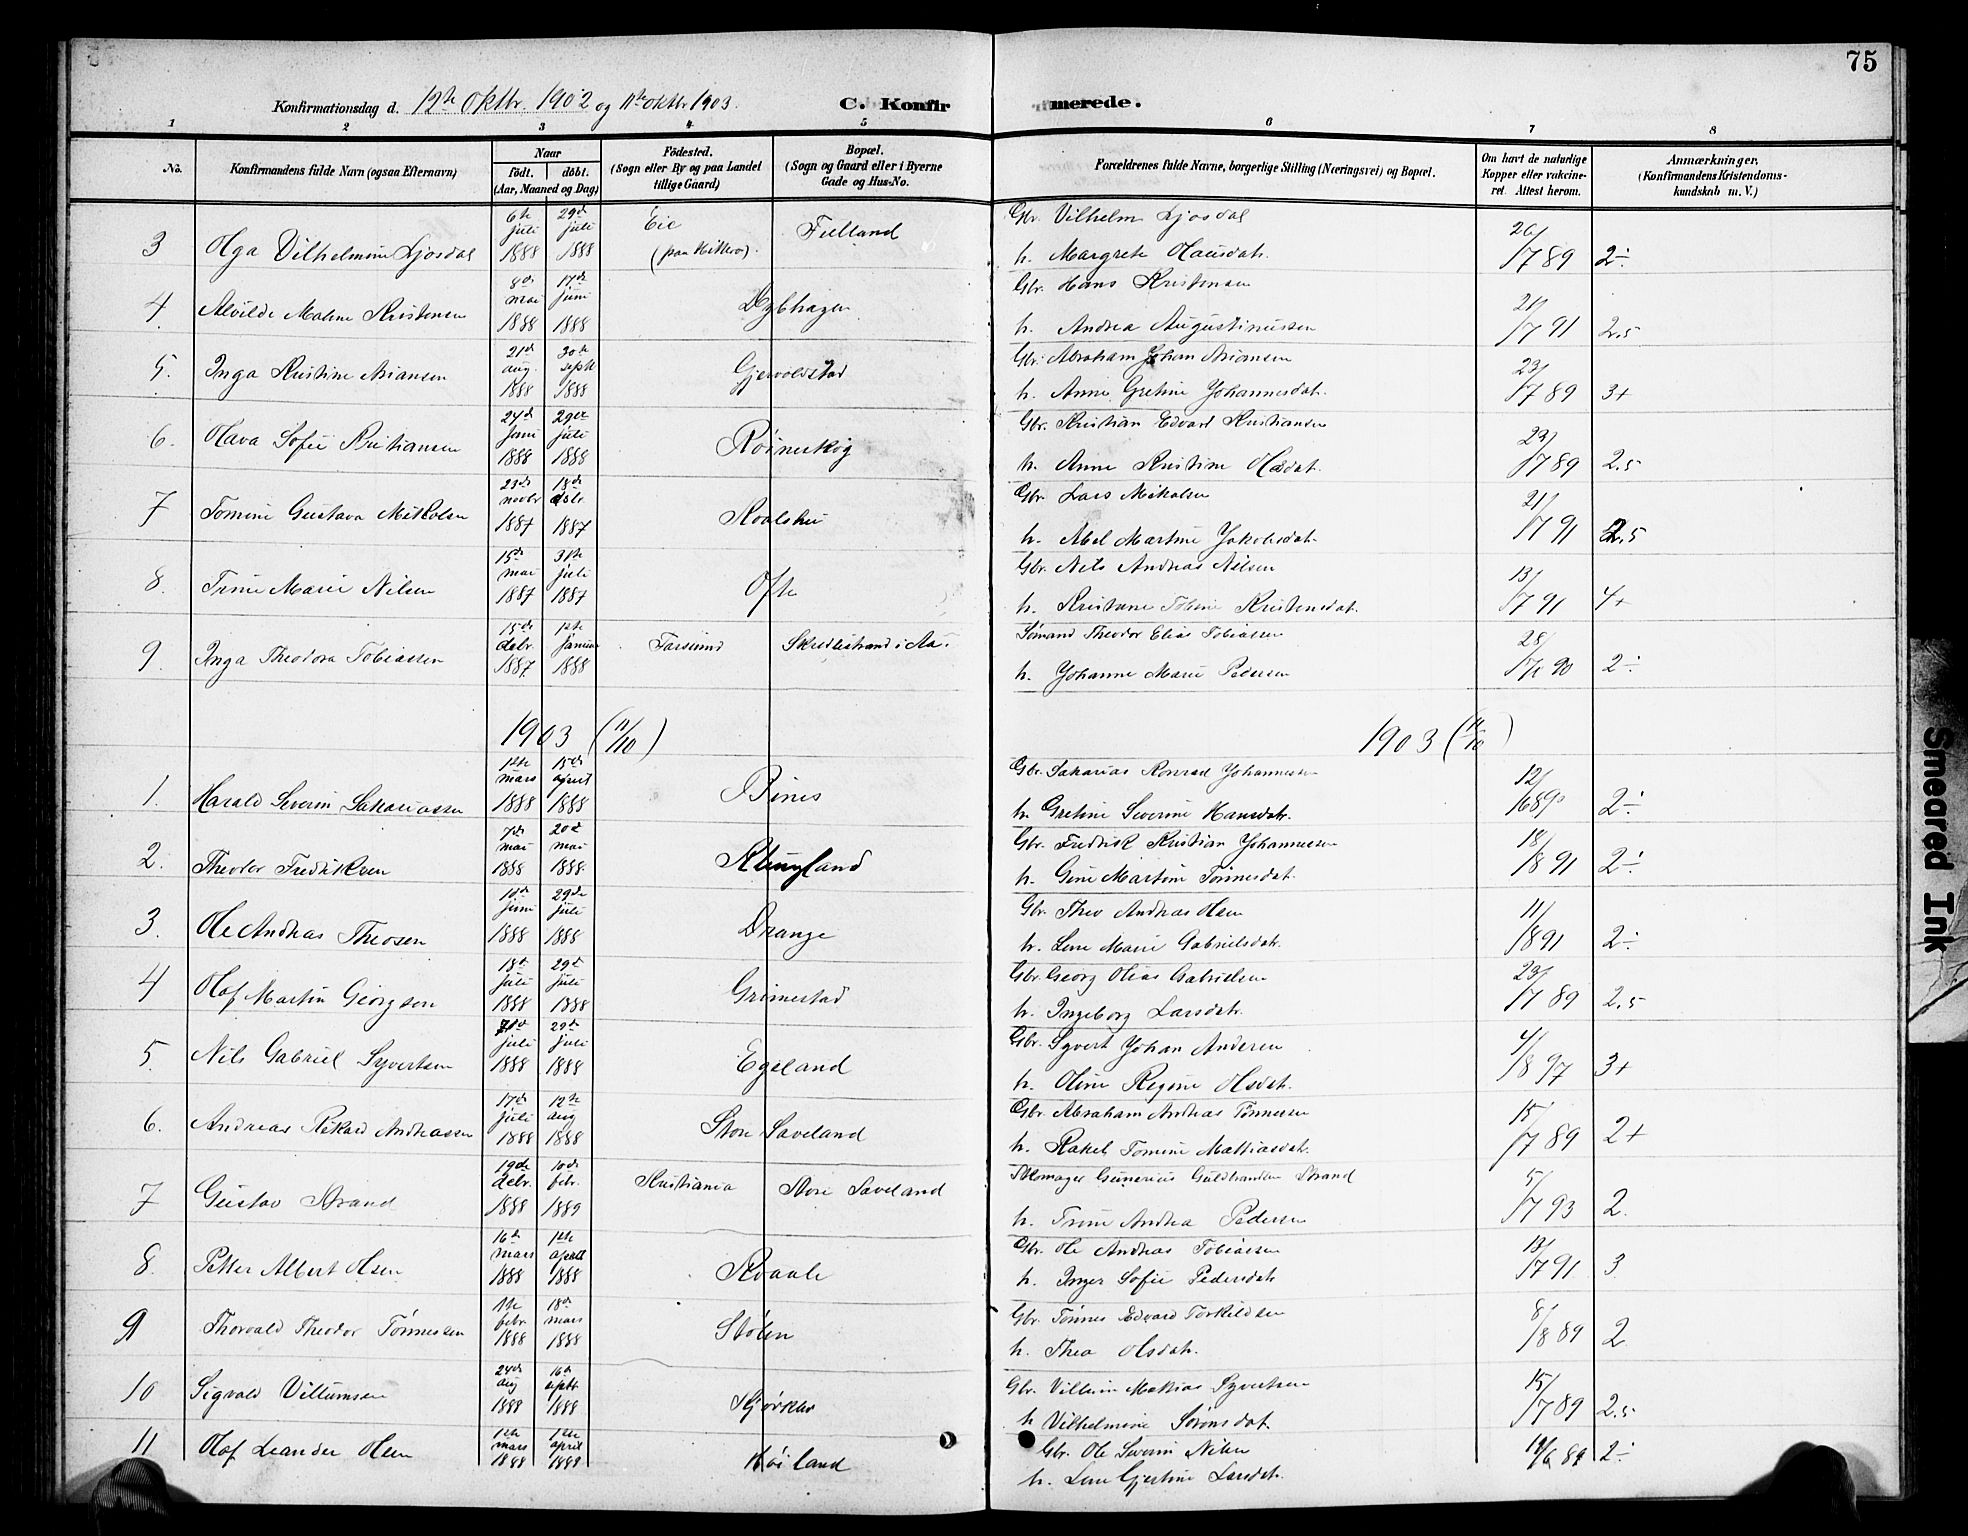 75
Konfirmationsdag d. 12te Oktbr. 1902 og 11te Oktbr 1903. C. Konfirmerede.
1 2 3 4 5 6 7 8
No. Konfirmandens fulde Navn (ogsaa Efternavn) Naar født. døbt. (Aar, Maaned og Dag) Fødested. (Sogn eller By og paa Landet tillige Gaard) Bopæl. (Sogn og Gaard eller i Byerne Gade og Hus-No. Forældrenes fulde Navne, borgerlige Stilling (Næringsvei) og Bopæl. Om havt de naturlige Kopper eller vakcineret. Attest herom. Anmærkninger. (Konfirmandens Kristendomskundskab m. V.)
3 Olga Vilhelmine Ljosdal 6te juli 1888 29de juli 1888 Eie (paa Hitterø). Feiland Gbr. Vilhelm Ljosdal
h. Margrete Hansdatr. 26/7 89 2÷
4 Alvilde Malene Kristensen 8de mai 1888 17de juni 1888 Dybhagen Gbr. Hans Kristensen
h. Andrea Augustinussen 21/7 91 2.5
5. Inga Kristine Ariansen 21de aug. 1888 30te septb 1888 Gjervoldstad Gbr. Abraham Johan Ariansen
h. Anne Gretine Johannesdatr. 23/7 89 3+
6. Olava Sofie Kristiansen 24de juni 1888 29de juli 1888 Røineskog Gbr. Kristian Edvard Kristiansen
h. Anne Kristine Olsdat. 23/7 89 2.5
7 Tomine Gustava Mikalsen 23de novbr 1887 18de debr. 1887 Roalshei Gbr. Lars Mikalsen
h. Abel Martine Jakobsdatr 21/7 91 2.5
8. Trine Marie Nilsen 15de mai 1887 31te juli 1887 Ofte Gbr. Nils Andreas Nilsen
h. Kristiane Tobine Kristensdat. 13/7 91 4+
9. Inga Theodora Tobiassen 15de debr. 1887 1ste januar 1888 Farsund Skredlestrand i Aa. Sømand Theodor Elias Tobiassen
h. Johanne Marie Pedersen 28/ 90 2÷
1903 (11/10) 1903 (11/10)
1. Harald Severin Sakariassen 1ste mars 1888 15de april 1888 Bines Gbr. Sakarias Konrad Johannessen
h. Gretine Severine Hansdatr. 12/6 89 2÷
2. Theodor Fredriksen 7de mai 1888 20de mai 1888. Klungland Gbr. Fredrik Kristian Johannessen
h. Gine Martine Tønnesdat. 18/8 91 2÷
3. Ole Andreas Theosen 10de juni 1888 29de juli 1888 Drange Gbr. Theo Andreas Olsen
h. Lene Marie Gabrielsdatr. 11/8 91 2÷
4 Olaf Martin Georgsen 18de juli 1888 29de juli 1888 Grimestad Gbr. Georg Olias Gabrielsen
h. Ingeborg Larsdatr. 23/7 89 2.5
5. Nils Gabriel Syvertsen juli 1888 29de juli 1888 Egeland Gbr. Syvert Johan Andersen
h. Oline Regine Olsdat. 4/8 97 3+
6. Andreas Rikard Andreassen 17de juli 1888 12te aug 1888 Store Saveland Gbr. Abraham Andreas Tønnesen
h. Rakel Tomine Mathiasdatr. 15/7 89 2+
7 Gustav Strand 19de debr. 1888 10de febr. 1889 Kristiania Store Saveland Skomager Gunerius Guldbrandsen Strand
h. Trine Andrea Pedersen 5/7 93 2.
8. Petter Albert Olsen 16de mars 1888 1ste april 1888 Rvaale Gbr. Ole Andreas Tobiassen
h. Inger Sofie Pedersdatr 13/7 91 3
9 Thorvald Theodor Tønnessen 1ste febr. 1888 18de mars 1888 Stølen Gbr. Tønnes Edvard Torkildsen
h. Thea Olsdatr. 8/8 89 2.
10 Sigvald Villumsen 24de aug 1888 16de septbr 1888 Gbr. Villum Mathias Syvertsen
h Vilhelmine Sørensdat. 15/7 89 2.5
11 Olaf Leander Olsen 1ste mars 1888 1ste april 1888 Høiland Gbr. Ole Severin Nilsen
h. Lene Gjertine Larsdat. 89 2÷
Smeared Ink